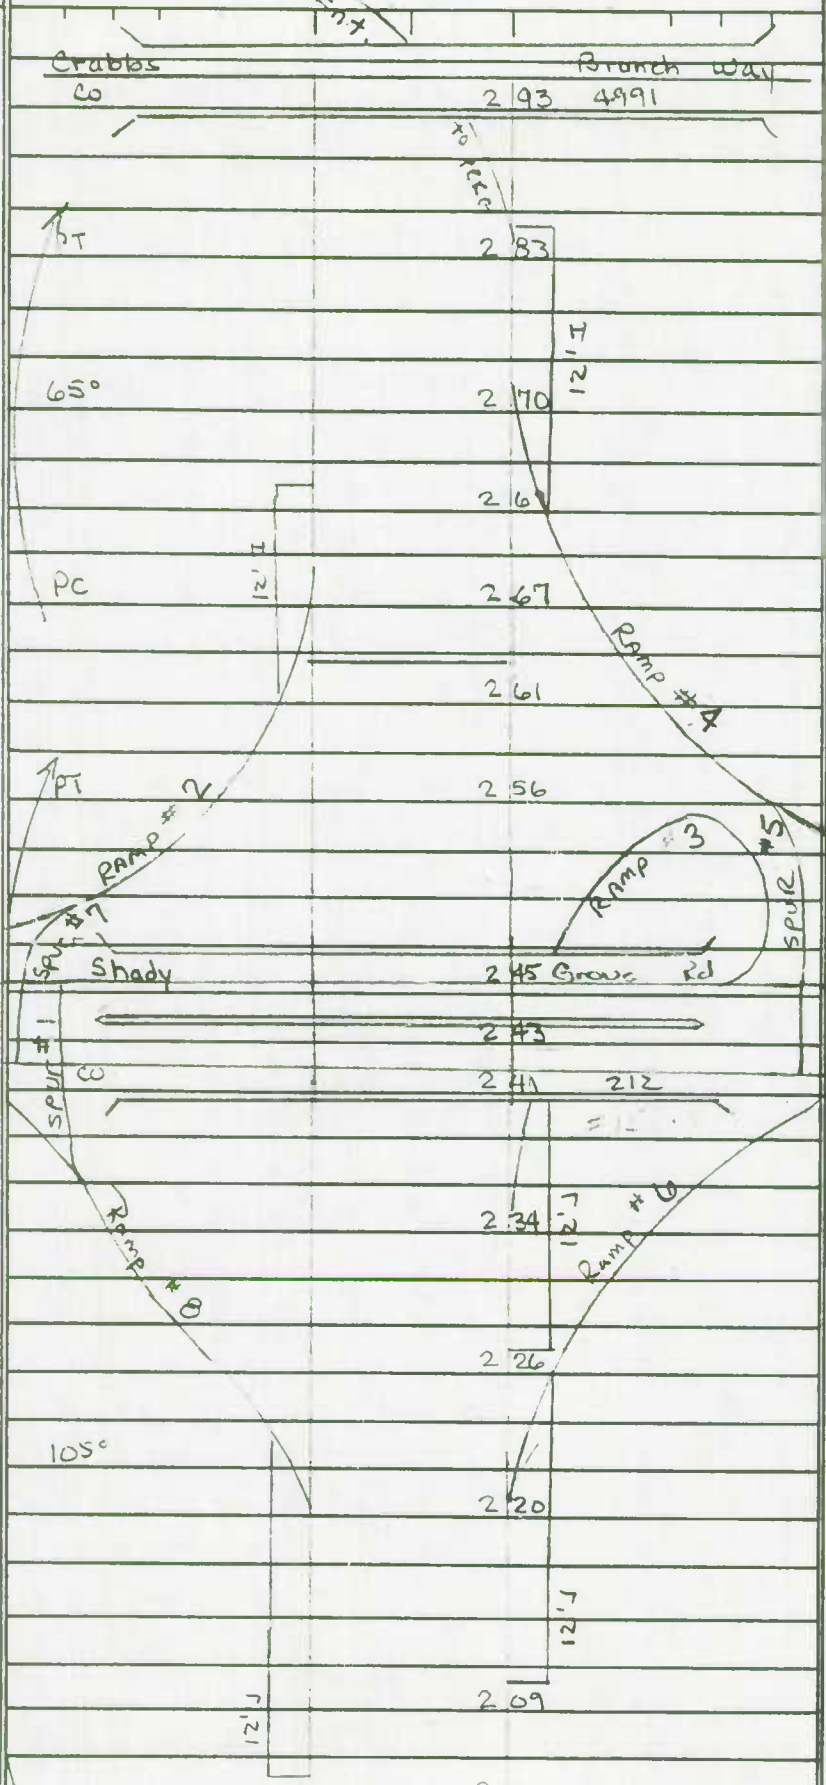 Crabbs Branch Way
CO 2 93 4991
PT 2 83
12' I
65° 2 70
2 6
12' I
PC 2 67
RAMP # 4
2 61
PT 2 56
RAMP # 2
RAMP # 3
SPUR #5
SPUR #7
Shady 2 45 Grove Rd
SPUR #1
2 43
CO 2 41 212
2 34 12'
Ramp # 6
Ramp # 8
2 26
105°
2 20
12'
2 09
12'